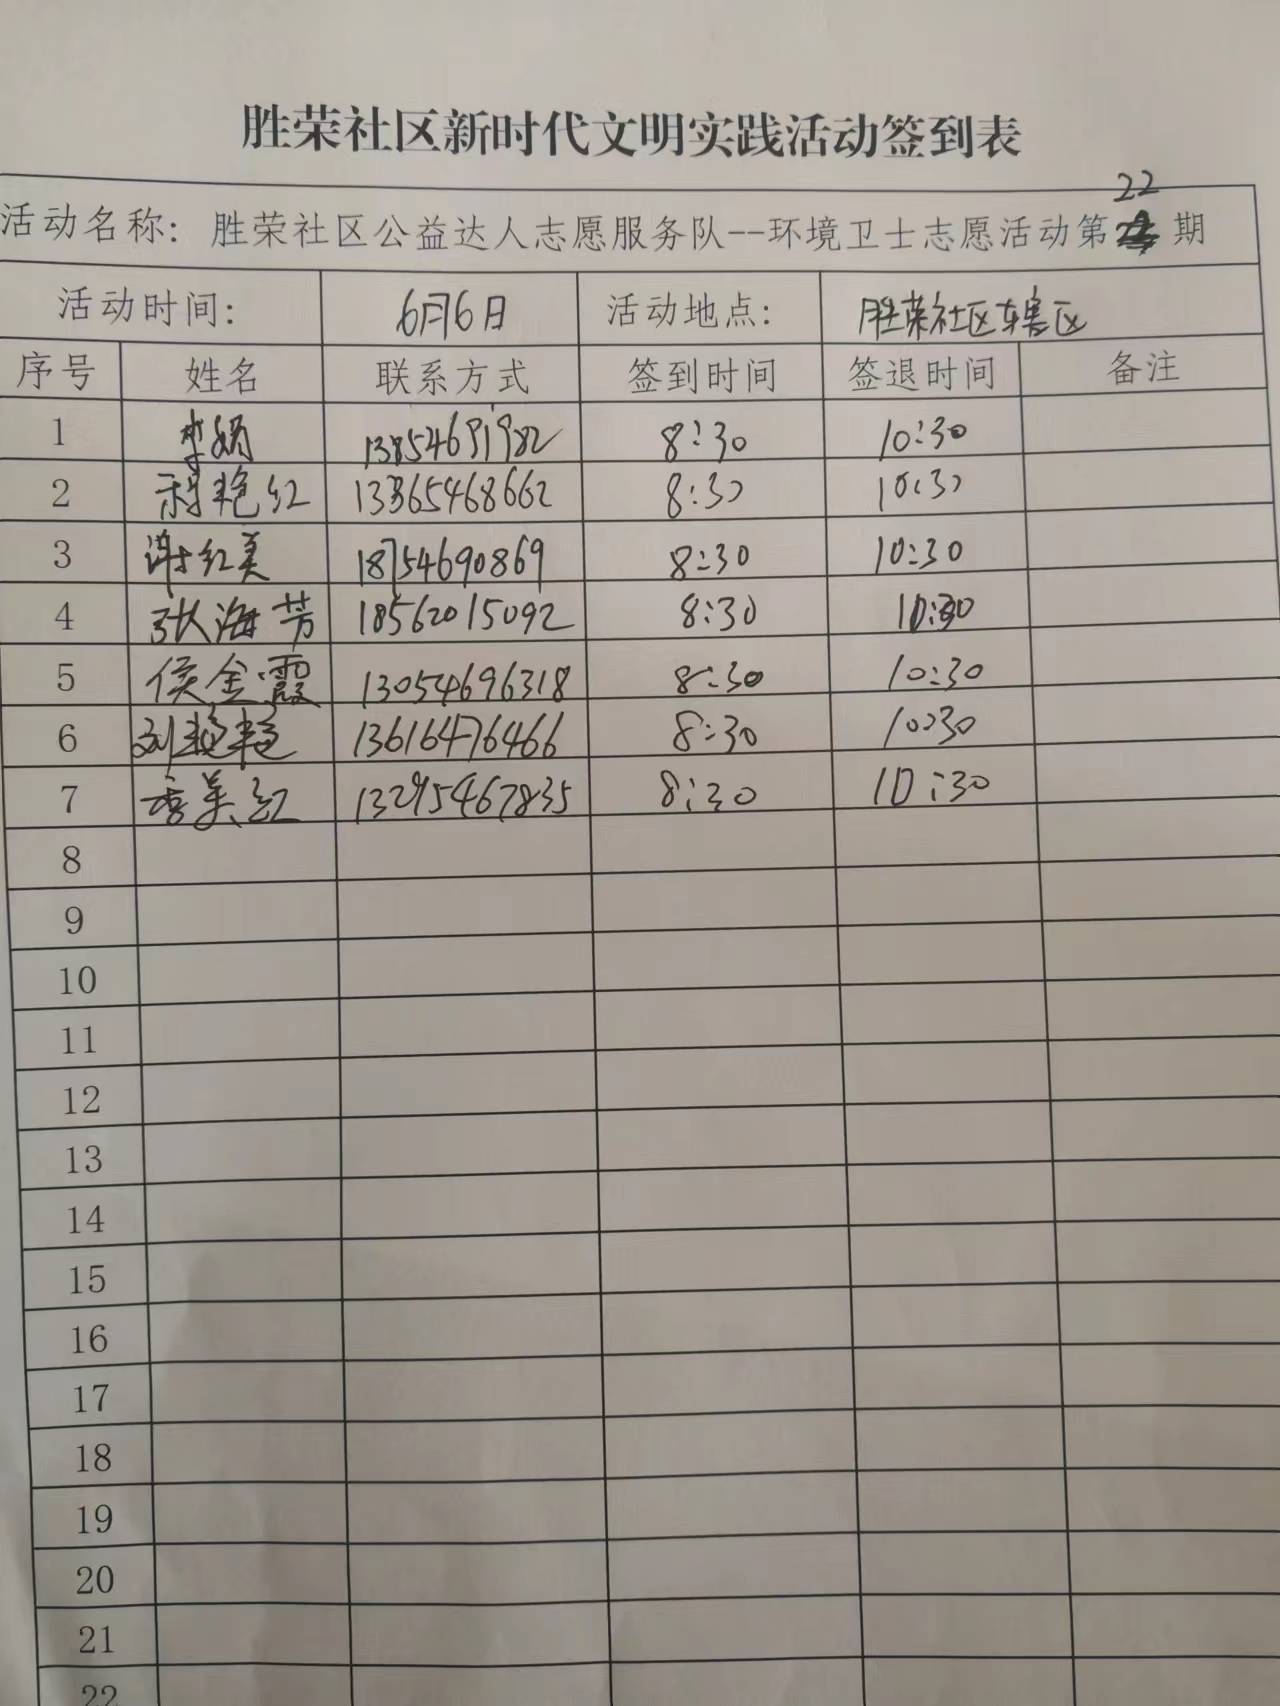 胜荣社区新时代文明实践活动签到表
22
活动名称: 胜荣社区公益达人志愿服务队--环境卫士志愿活动第 期
活动时间: 6月6日 活动地点: 胜荣社区辖区
序号 姓名 联系方式 签到时间 签退时间 备注
1 李娟 13854691982 8:30 10:30
2 艳红 13365468662 8:30 10:30
3 谢红美 18754690869 8:30 10:30
4 张海芳 18562015092 8:30 10:30
5 侯金霞 13054696318 8:30 10:30
6 刘艳艳 13616476466 8:30 10:30
7 李美红 13295467835 8:30 10:30
8
9
10
11
12
13
14
15
16
17
18
19
20
21
22